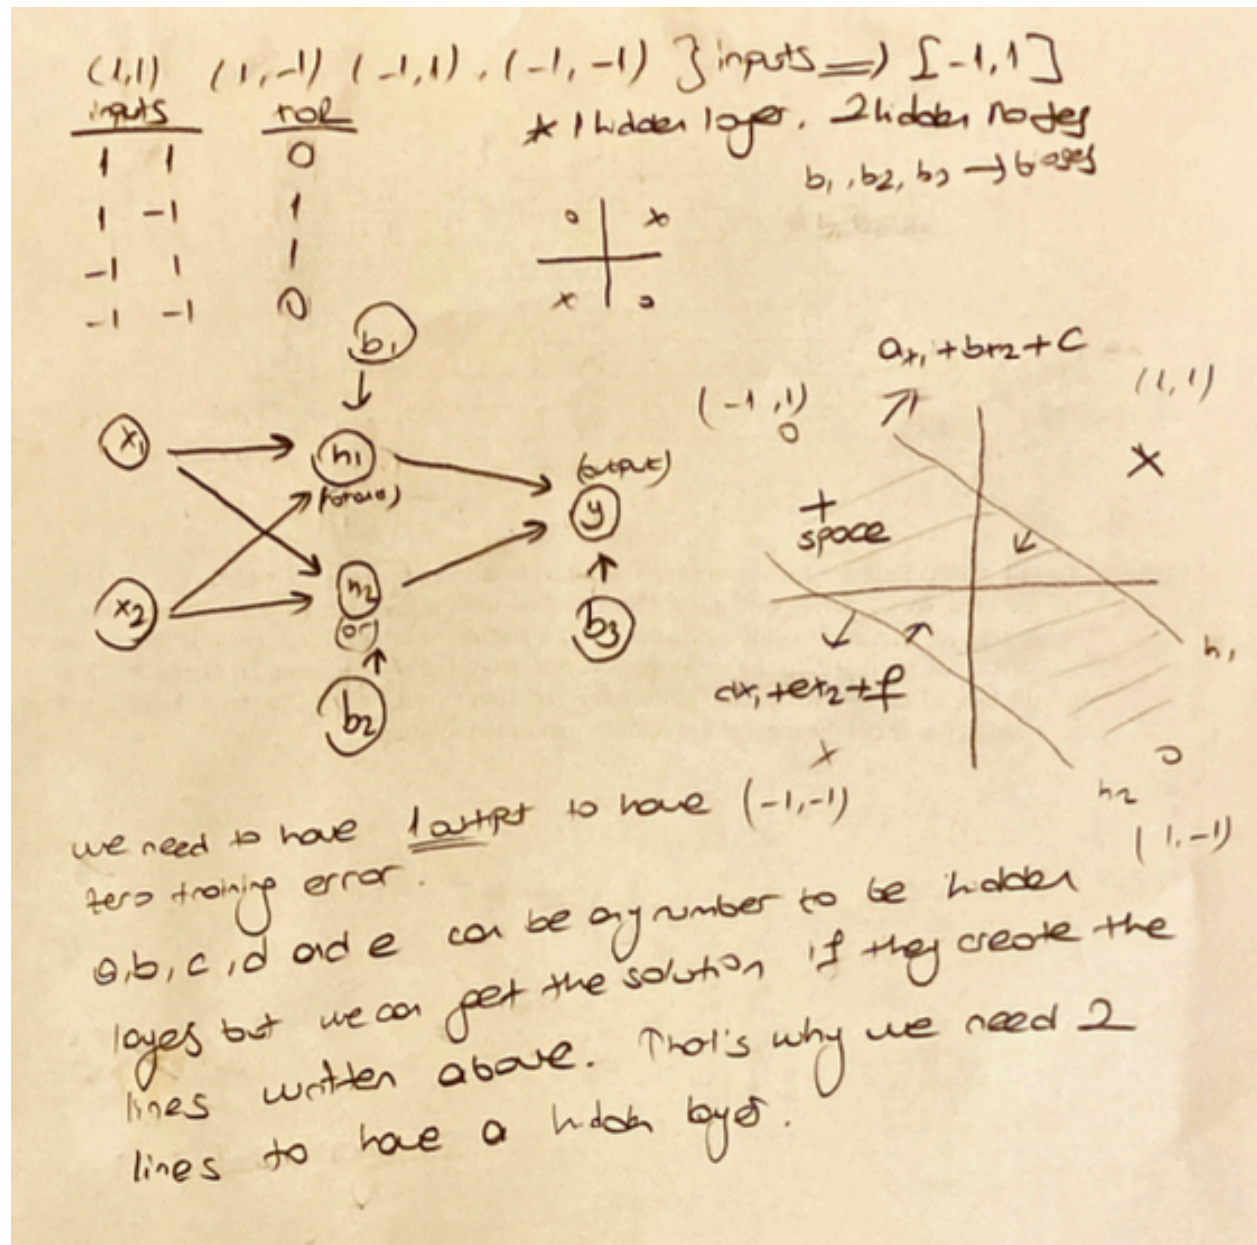 (1,1) (1,-1) (-1,1), (-1,-1) } inputs => [-1,1]
inputs
1 1 0
1 -1 1
-1 1 1
-1 -1 0
* 1 hidden layer. 2 hidden nodes
b1, b2, b3 → biases
o x
x o
b1
x1
h1
x2
h2
(or)
b2
(output)
y
b3
ax1 + bx2 + c
(-1,1)
o
(1,1)
x
+
space
h1
dx1 + ex2 + f
x
o
h2
(1,-1)
we need to have 1 output to have (-1,-1)
zero training error.
a, b, c, d and e can be any number to be hidden
layes but we can get the solution if they create the
lines written above. That's why we need 2
lines to have a hidden layer.